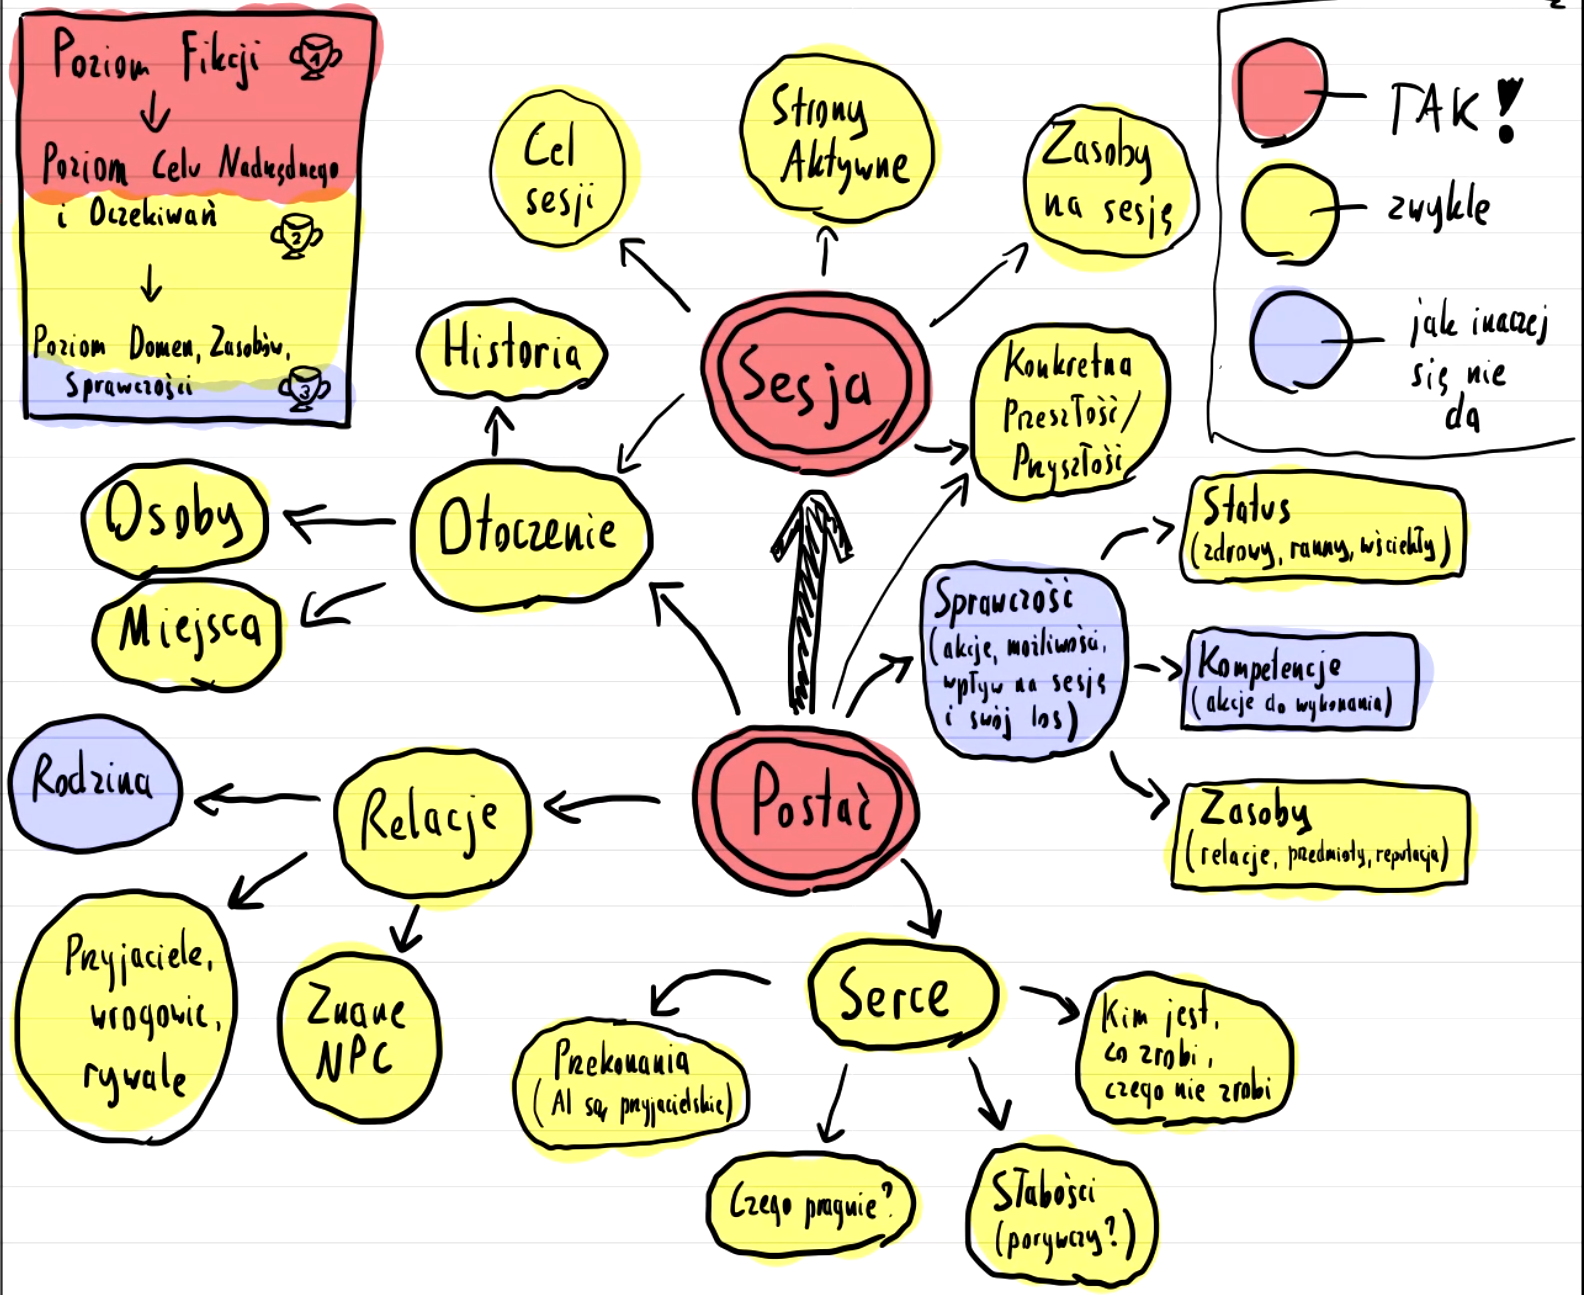 Poziom Fikcji 1
Poziom Celu Nadrzędnego
i Oczekiwań
2
Poziom Domen, Zasobów,
Sprawczości 3
TAK!
zwykle
jak inaczej
się nie
da
Cel
sesji
Strony
Aktywne
Zasoby
na sesję
Historia
Sesja
Konkretna
Przeszłość/
Przyszłość
Osoby
Otoczenie
Miejsca
Status
(zdrowy, ranny, wściekły)
Sprawczość
(akcje, możliwości,
wpływ na sesję
i swój los)
Kompetencje
(akcje do wykonania)
Zasoby
(relacje, przedmioty, reputacja)
Rodzina
Relacje
Postać
Przyjaciele,
wrogowie,
rywale
Znane
NPC
Serce
Przekonania
(AI są przyjacielskie)
Kim jest,
co zrobi,
czego nie zrobi
Czego pragnie?
Słabości
(porywczy?)